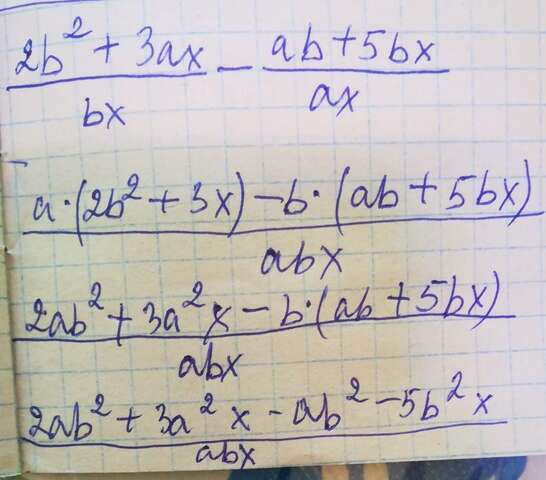 2b² + 3ax / bx − ab + 5bx / ax
a·(2b² + 3x) − b·(ab + 5bx) / abx
2ab² + 3a²x − b·(ab + 5bx) / abx
2ab² + 3a²x − ab² − 5b²x / abx